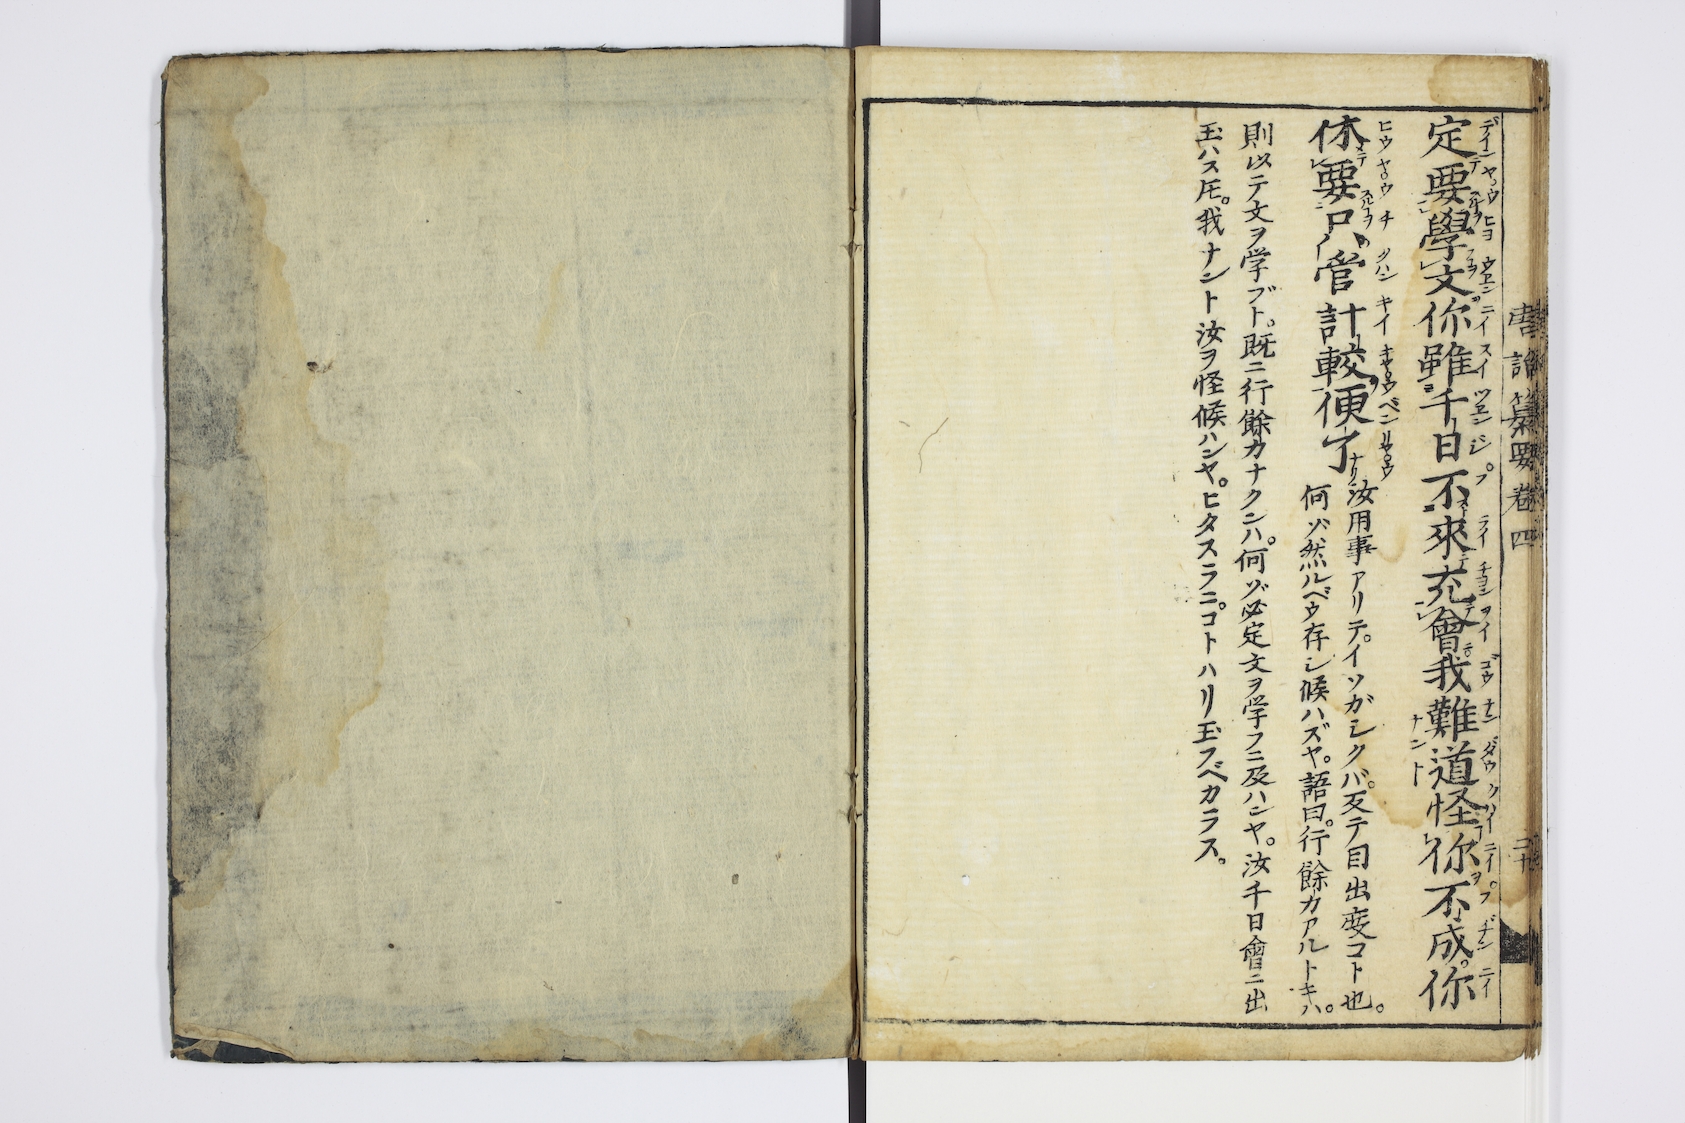 定要學文你雖千日不來充會我難道怪你不成你
休要只管計較便了
汝用事アリテ。イソガシクバ。反テ目出度コト也。
何ゾ然ルベウ存シ候ハズヤ。語曰。行餘力アルトキハ。
則以テ文ヲ学ブト。既ニ行餘力ナクンハ。何ゾ必定文ヲ学フニ及ハンヤ。汝千日會ニ出
玉ハス𪜈。我ナント汝ヲ怪候ハンヤ。ヒタスラニ。コトハリ玉フベカラス。
唐話纂要卷四
二十